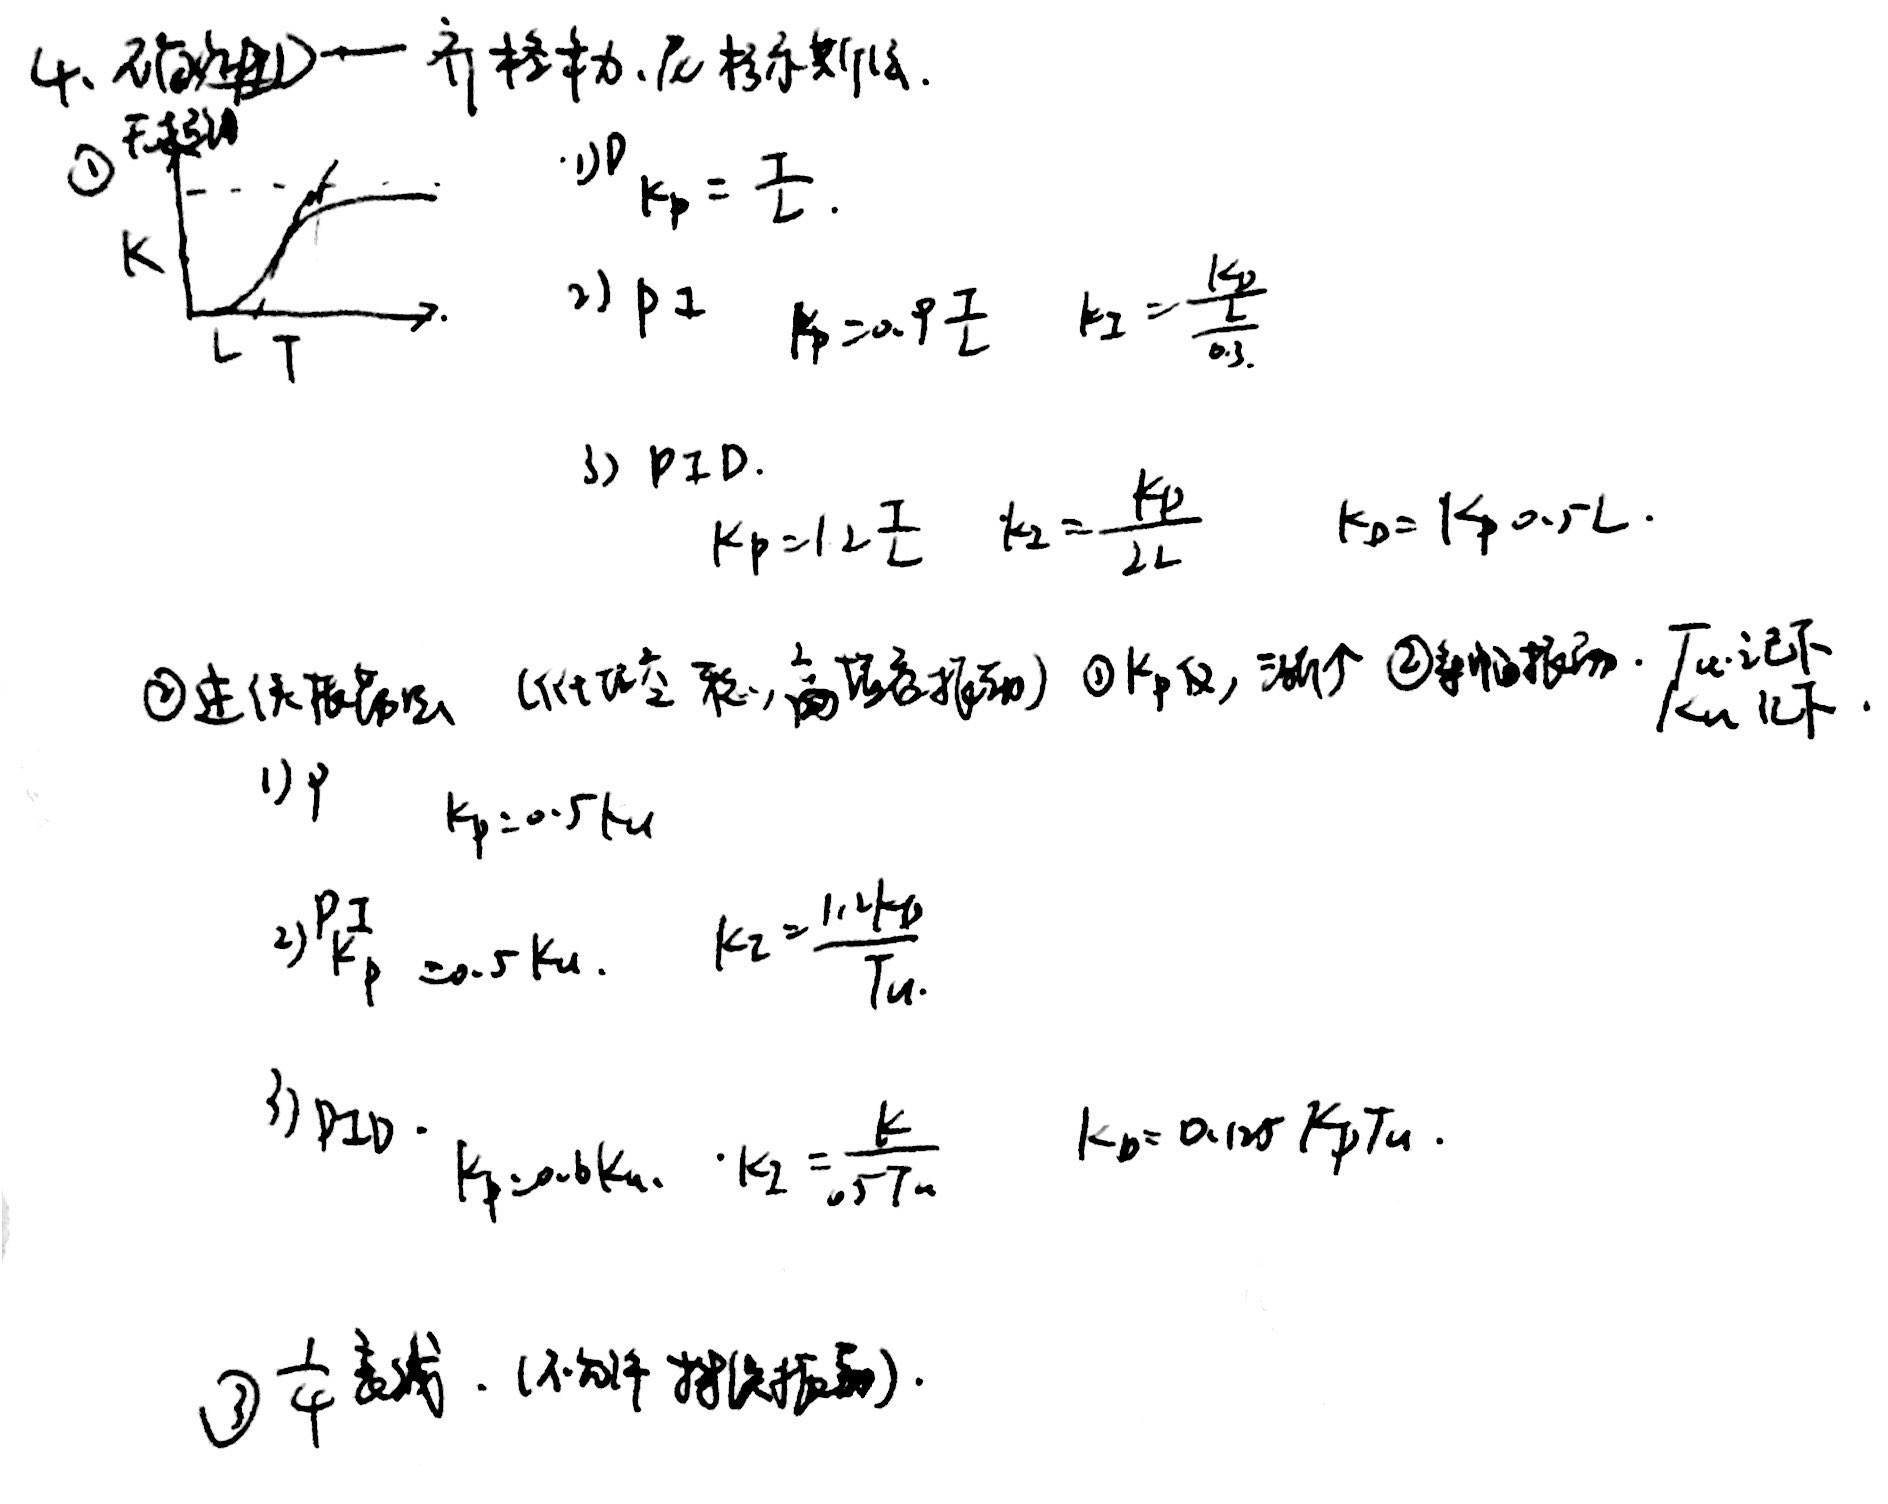 4、无模型 ← 齐格勒、尼柯尔斯法.
① 无超调
K
L T
1) P Kp = T/L.
2) PI Kp = 0.9 T/L KI = Kp/(L/0.3).
3) PID.
Kp = 1.2 T/L KI = Kp/2L KD = Kp 0.5L.
② 连续振荡法 ① Kp 仅, 渐↑ ② 等幅振动. Tu 记下
Ku 记下.
1) P
Kp = 0.5Ku
2) PI
Kp = 0.5Ku. KI = 1.2Kp/Tu.
3) PID.
Kp = 0.6Ku. KI = K/0.5Tu KD = 0.125 KpTu.
③ 1/4 衰减. (不允许持续振动).